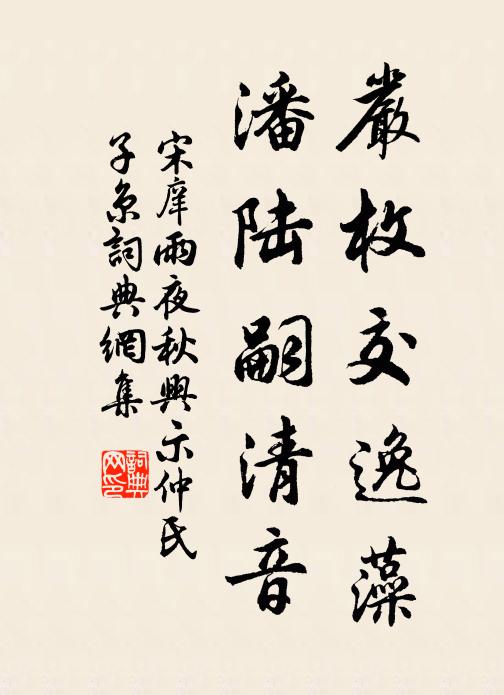 嚴枚交逸藻
潘陆嗣清音
宋庠雨夜秋興示仲氏
子京詞典網集
詞典
网印